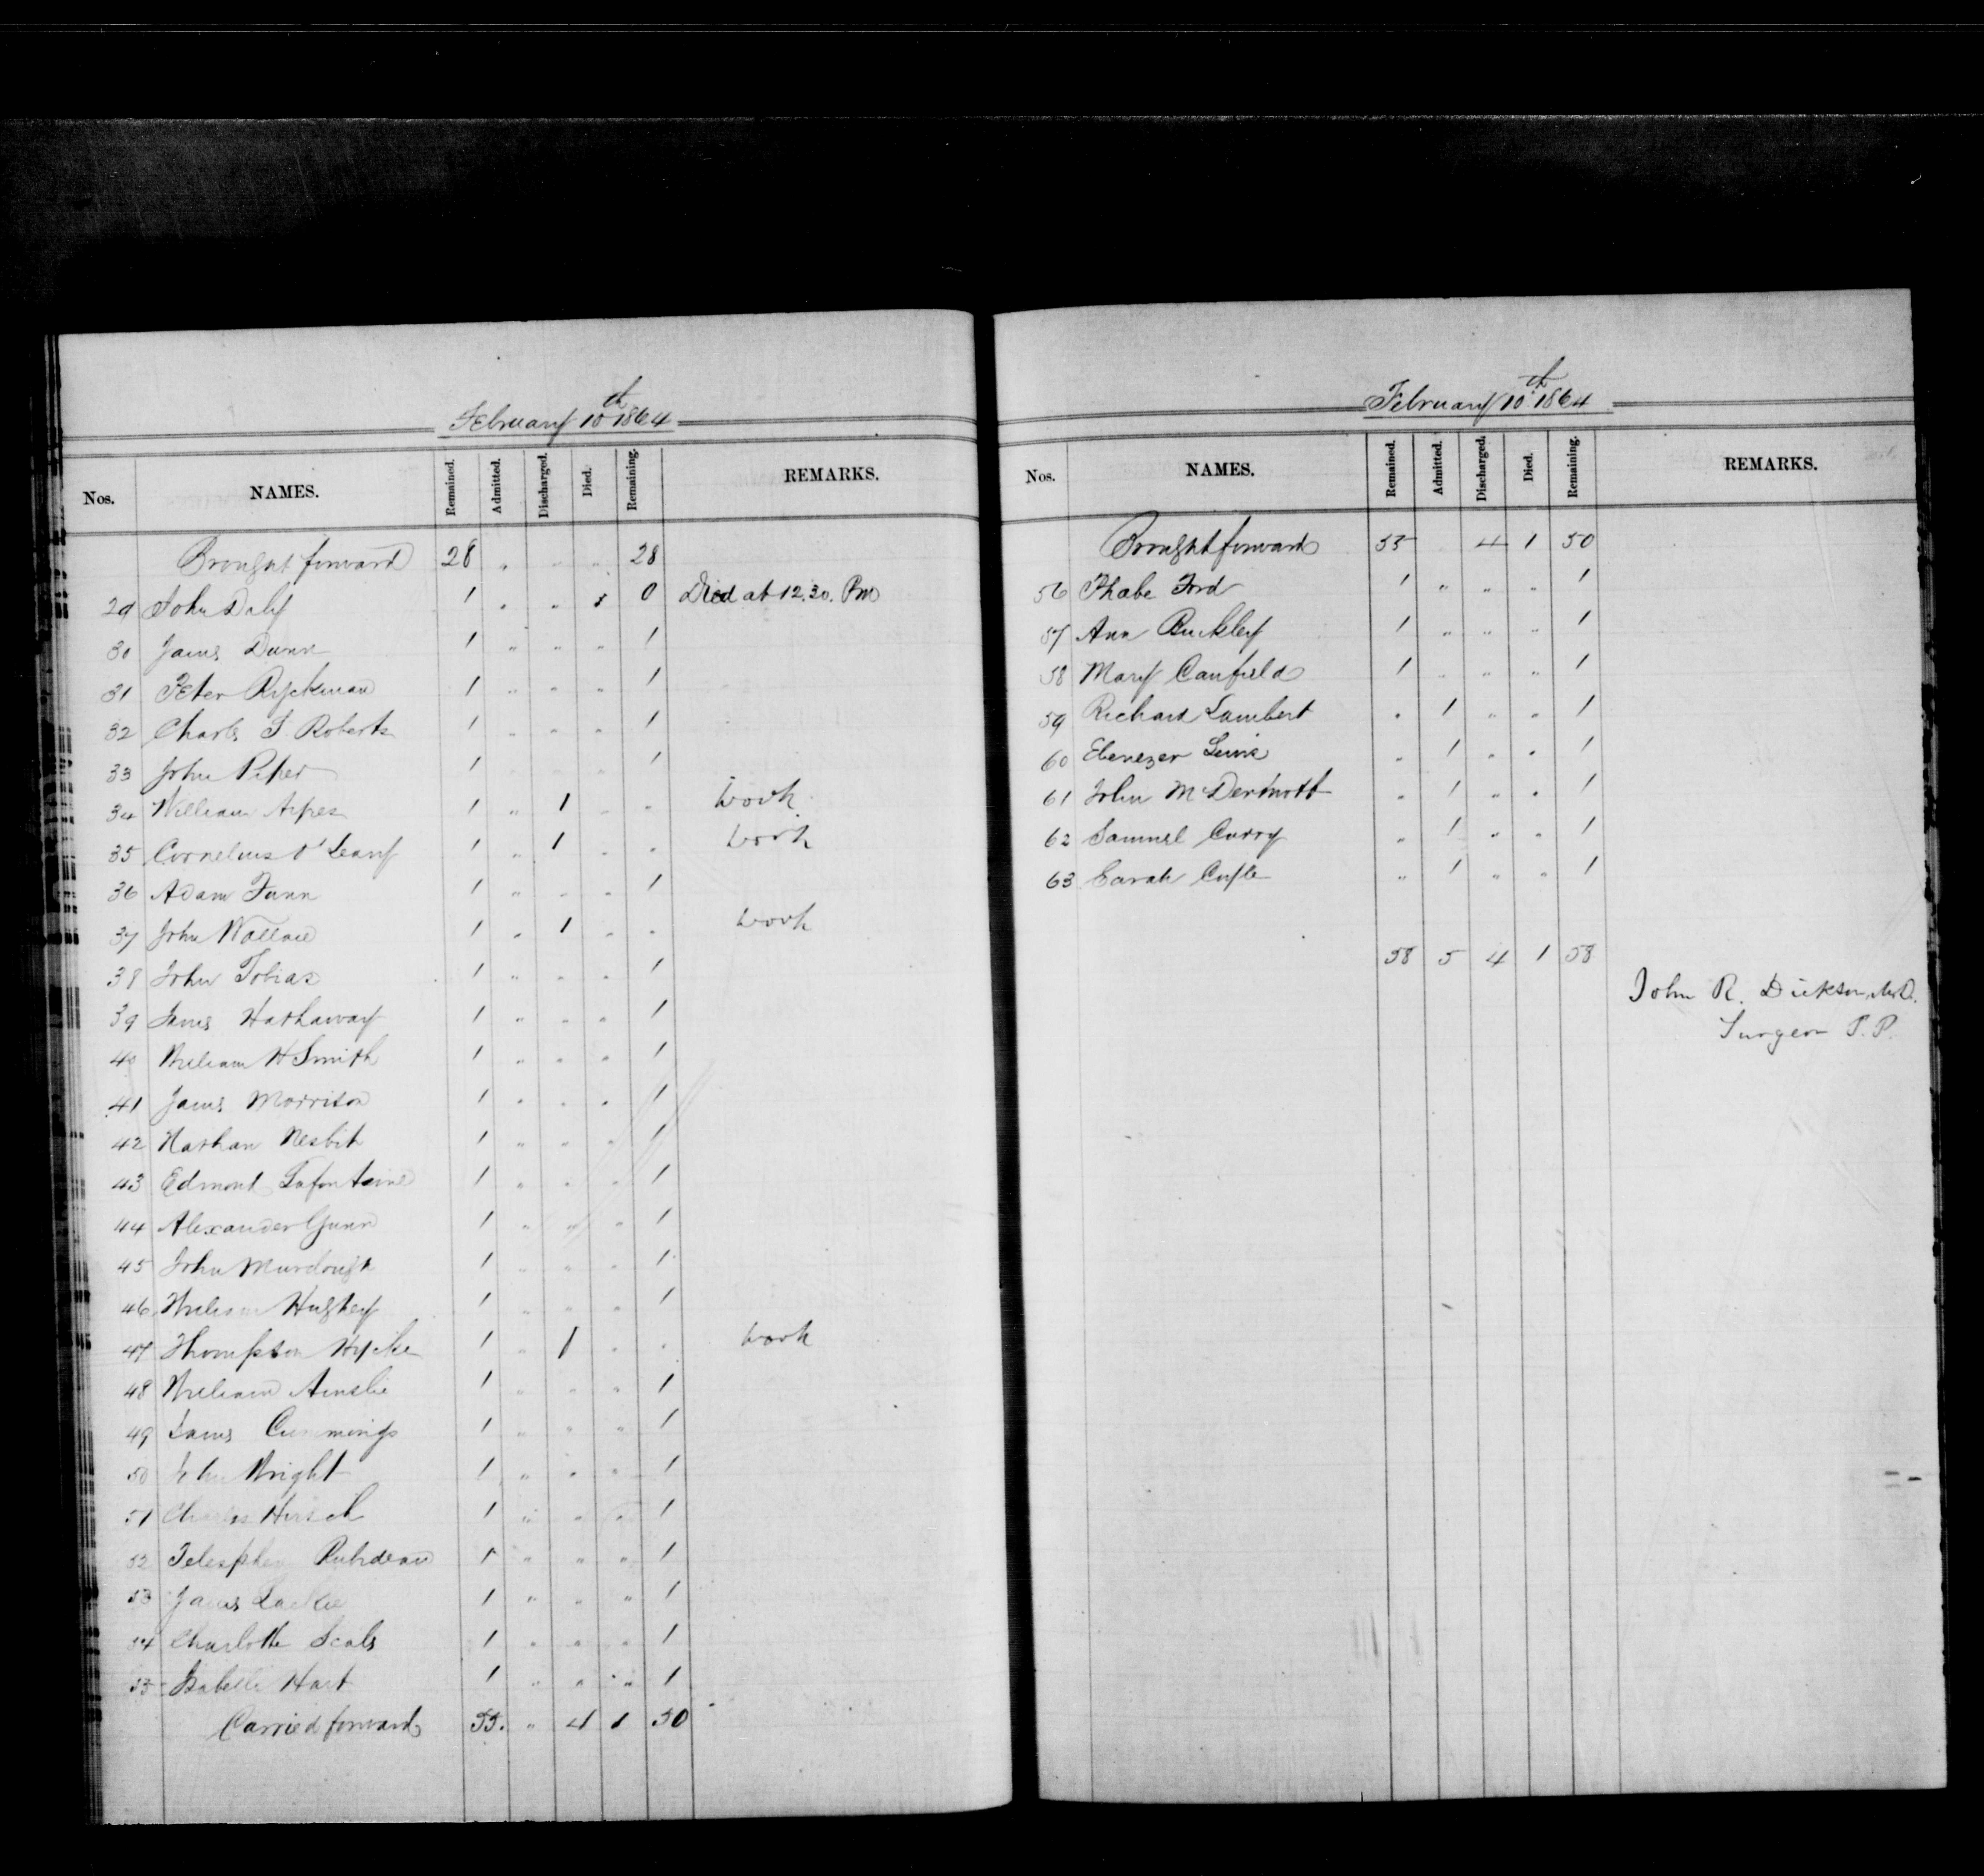 February 10th 1864
Nos. NAMES. Remained. Admitted. Discharged. Died. Remaining. REMARKS.
Brought forward 28 " " " 28
29 John Daly 1 " " 1 0 Died at 12.30. Pm
30 James Dunn 1 " " " 1
31 Peter Ryckman 1 " " " 1
32 Charles S. Roberts 1 " " " 1
33 John Piper 1 " " " 1
34 William Ayres 1 " 1 " " work
35 Cornelius O'Leary 1 " 1 " " work
36 Adam Funn 1 " " " 1
37 John Wallace 1 " 1 " " work
38 John Tobias 1 " " " 1
39 James Hathaway 1 " " " 1
40 William H Smith 1 " " " 1
41 James Morrison 1 " " " 1
42 Nathan Nesbit 1 " " " 1
43 Edmont Lafontaine 1 " " " 1
44 Alexander Gunn 1 " " " 1
45 John Murdough 1 " " " 1
46 William Hughey 1 " " " 1
47 Thompson Wycke 1 " 1 " " work
48 William Ainslie 1 " " " 1
49 James Cummings 1 " " " 1
50 John Wright 1 " " " 1
51 Charles Hirsch 1 " " " 1
52 1 " " " 1
53 James Lackie 1 " " " 1
54 Charlotte Scals 1 " " " 1
55 Isabella Hart 1 " " " 1
Carried forward 55. " 4 1 50
February 10th 1864
Nos. NAMES. Remained. Admitted. Discharged. Died. Remaining. REMARKS.
Brought forward 55 4 1 50
56 Phabe Ford 1 " " " 1
57 Ann Buckley 1 " " " 1
58 Mary Canfield 1 " " " 1
59 Richard Lambert " 1 " " 1
60 Ebenezer Lewis " 1 " " 1
61 John McDermott " 1 " " 1
62 Samuel Curry " 1 " " 1
63 Sarah Cuple " 1 " " 1
58 5 4 1 58
John R. Dickson, M.D.
Surgeon P. P.